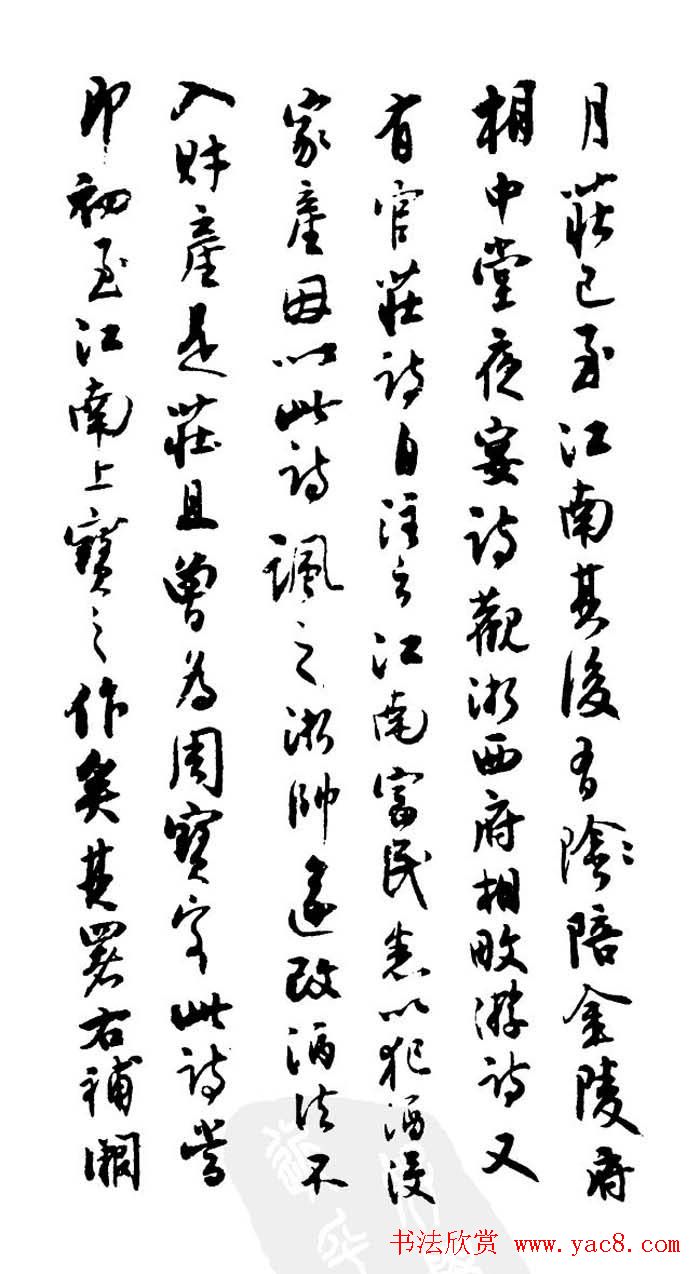 月莊已至江南其後有陰陪金陵府
相中堂夜宴詩觀浙西府相畋游詩又
有官莊詩自注云江南富民悉以犯酒没
家產因以此詩諷之浙帥遂改酒法不
入財產是莊且曾為周寶客此詩當
即初至江南上寶之作矣其署右補闕
书法欣赏 www.yac8.com